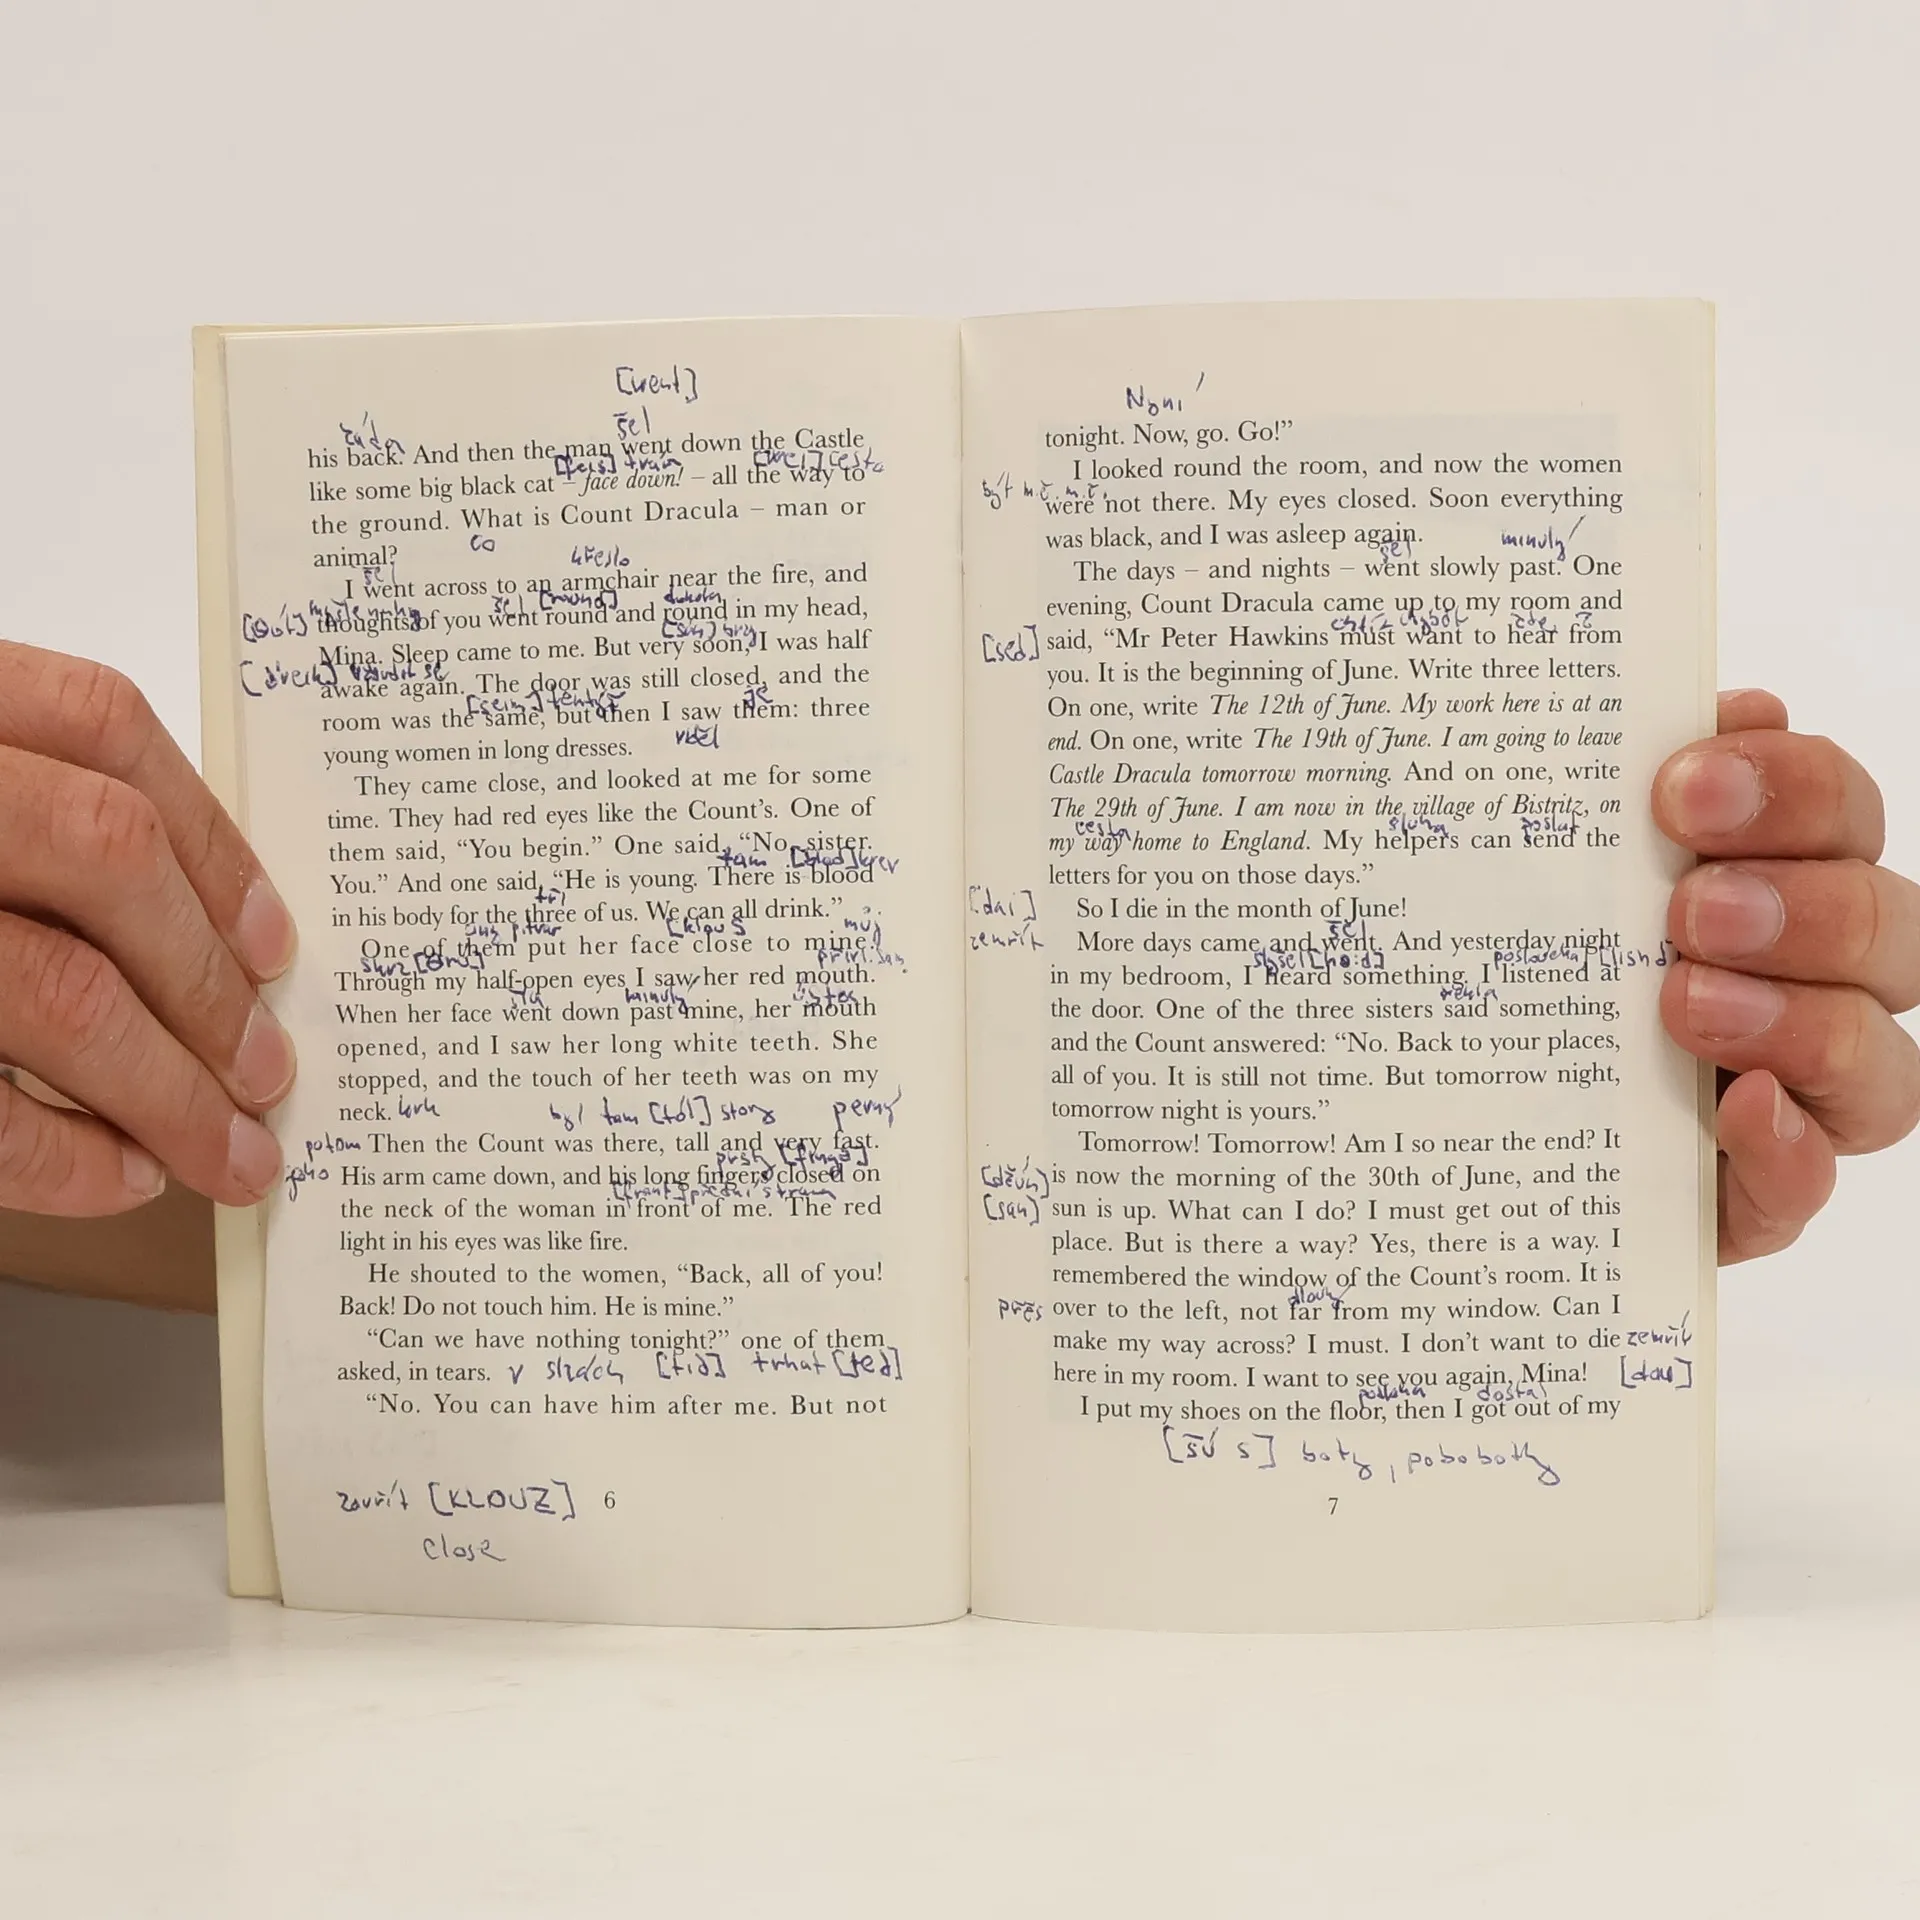 [went]
záda šel
his back. And then the man went down the Castle
[feis] [wei] cesta
like some big black cat – face down! – all the way to
the ground. What is Count Dracula – man or
co
animal?
šel křeslo
I went across to an armchair near the fire, and
šel [round] dokola
thoughts of you went round and round in my head,
[sún] brzy
Mina. Sleep came to me. But very soon, I was half
vzbudit se
awake again. The door was still closed, and the
[seim] je
room was the same, but then I saw them: three
viděl
young women in long dresses.
They came close, and looked at me for some
time. They had red eyes like the Count’s. One of
them said, “You begin.” One said, “No, sister.
tam [blad] krev
You.” And one said, “He is young. There is blood
tři
in his body for the three of us. We can all drink.”
[klous můj
One of them put her face close to mine.
skrz
Through my half-open eyes I saw her red mouth.
minulý ústa
When her face went down past mine, her mouth
opened, and I saw her long white teeth. She
stopped, and the touch of her teeth was on my
neck. krk
byl tam [tól] pevný
potom Then the Count was there, tall and very fast.
prsty
jeho His arm came down, and his long fingers closed on
[front] přední strana
the neck of the woman in front of me. The red
light in his eyes was like fire.
He shouted to the women, “Back, all of you!
Back! Do not touch him. He is mine.”
“Can we have nothing tonight?” one of them
asked, in tears. v slzách [tiə] trhat [teə]
“No. You can have him after me. But not
zavřít [KLOUZ] 6
close
Nyní
tonight. Now, go. Go!”
I looked round the room, and now the women
být m.č. m.č.
were not there. My eyes closed. Soon everything
was black, and I was asleep again.
šel minulý
The days – and nights – went slowly past. One
evening, Count Dracula came up to my room and
[sed] said, “Mr Peter Hawkins must want to hear from
you. It is the beginning of June. Write three letters.
On one, write The 12th of June. My work here is at an
end. On one, write The 19th of June. I am going to leave
Castle Dracula tomorrow morning. And on one, write
The 29th of June. I am now in the village of Bistritz, on
cesta sluha poslat
my way home to England. My helpers can send the
letters for you on those days.”
[dai] So I die in the month of June!
zemřít
šel
More days came and went. And yesterday night
slyšel [hə:d]
in my bedroom, I heard something. I listened at
řekla
the door. One of the three sisters said something,
and the Count answered: “No. Back to your places,
all of you. It is still not time. But tomorrow night,
tomorrow night is yours.”
Tomorrow! Tomorrow! Am I so near the end? It
is now the morning of the 30th of June, and the
[san] sun is up. What can I do? I must get out of this
place. But is there a way? Yes, there is a way. I
remembered the window of the Count’s room. It is
dlouhý
přes over to the left, not far from my window. Can I
make my way across? I must. I don’t want to die zemřít
here in my room. I want to see you again, Mina! [dai]
podlaha dostal
I put my shoes on the floor, then I got out of my
[šú s] boty, poboboty
7